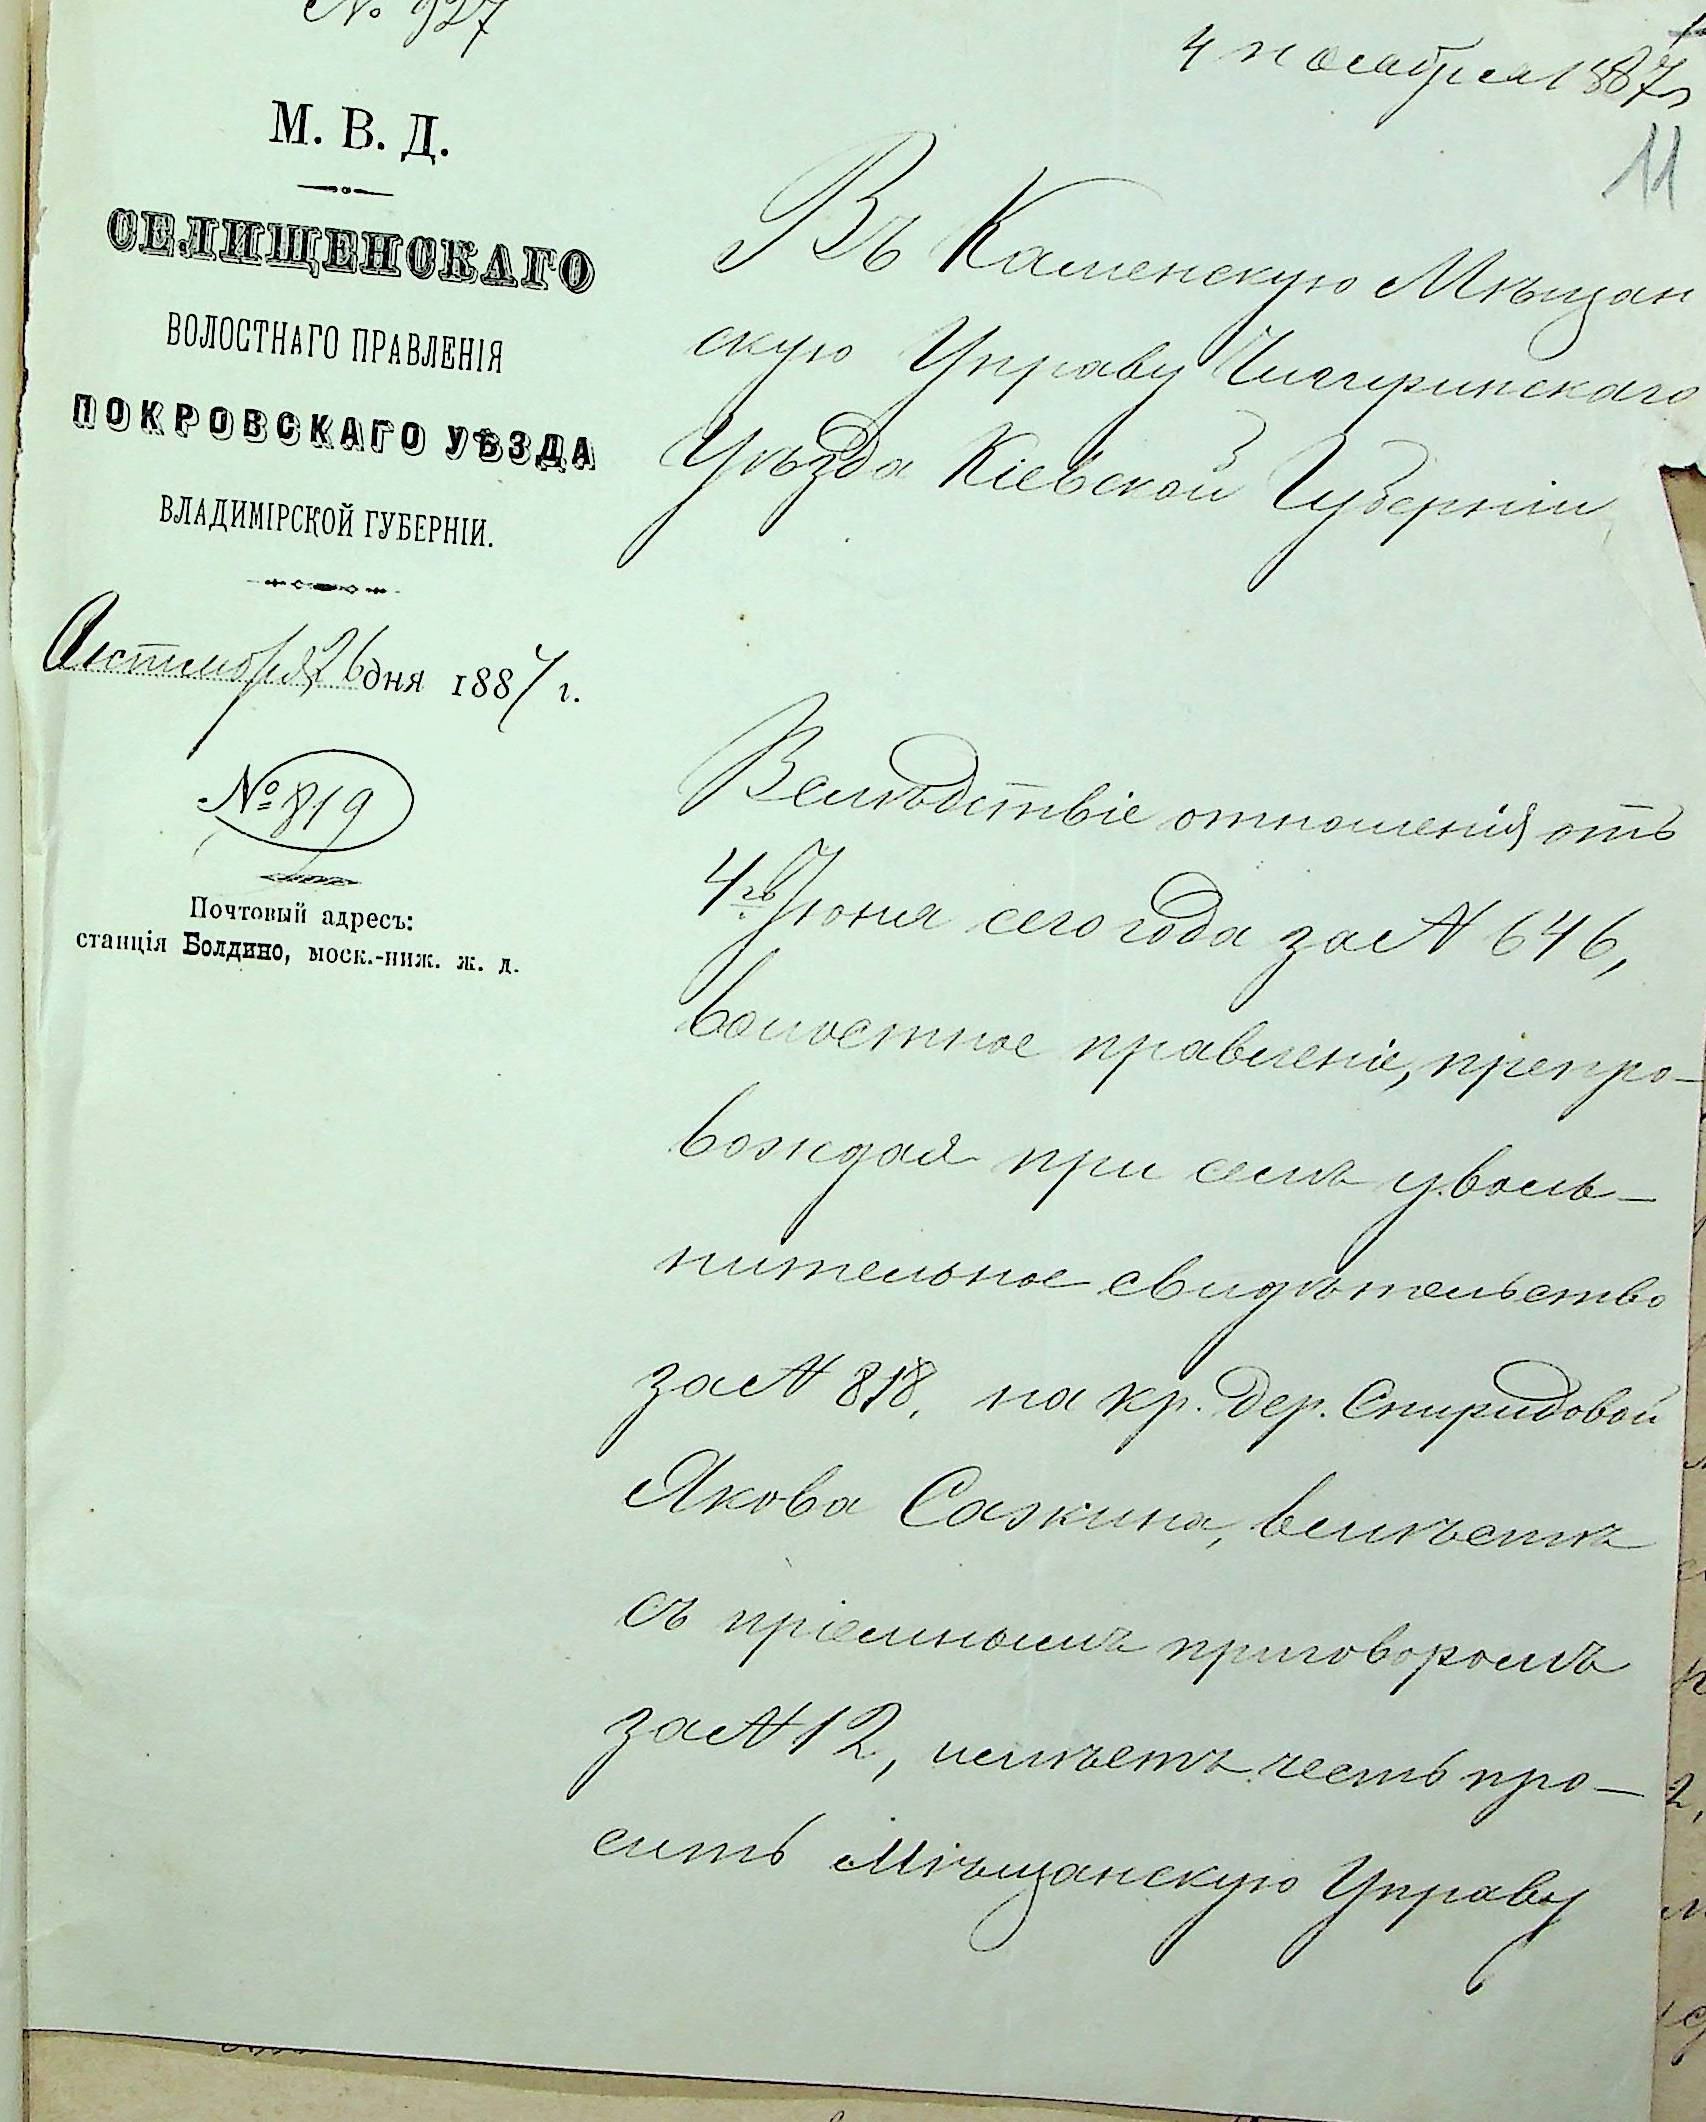 № 927
4 ноября 1887 г
11
М. В. Д.
СЕЛИЩЕНСКАГО
ВОЛОСТНАГО ПРАВЛЕНІЯ
ПОКРОВСКАГО УѢЗДА
ВЛАДИМІРСКОЙ ГУБЕРНІИ.
Октября 26 дня 1887 г.
№ 819
Почтовый адресъ:
станція Болдино, моск.-ниж. ж. д.
Въ Каменскую Мѣщан
скую Управу Чигиринскаго
Уѣзда Кіевской Губерніи
Вслѣдствіе отношенія отъ
4го Іюня сего года за № 646,
волостное правленіе, препро-
вождая при семъ уволь-
нительное свидѣтельство
за № 818, на кр. дер. Спиридовой
Якова Сажина, вмѣстѣ
съ пріемнымъ приговоромъ
за № 12, имѣетъ честь про-
сить Мѣщанскую Управу